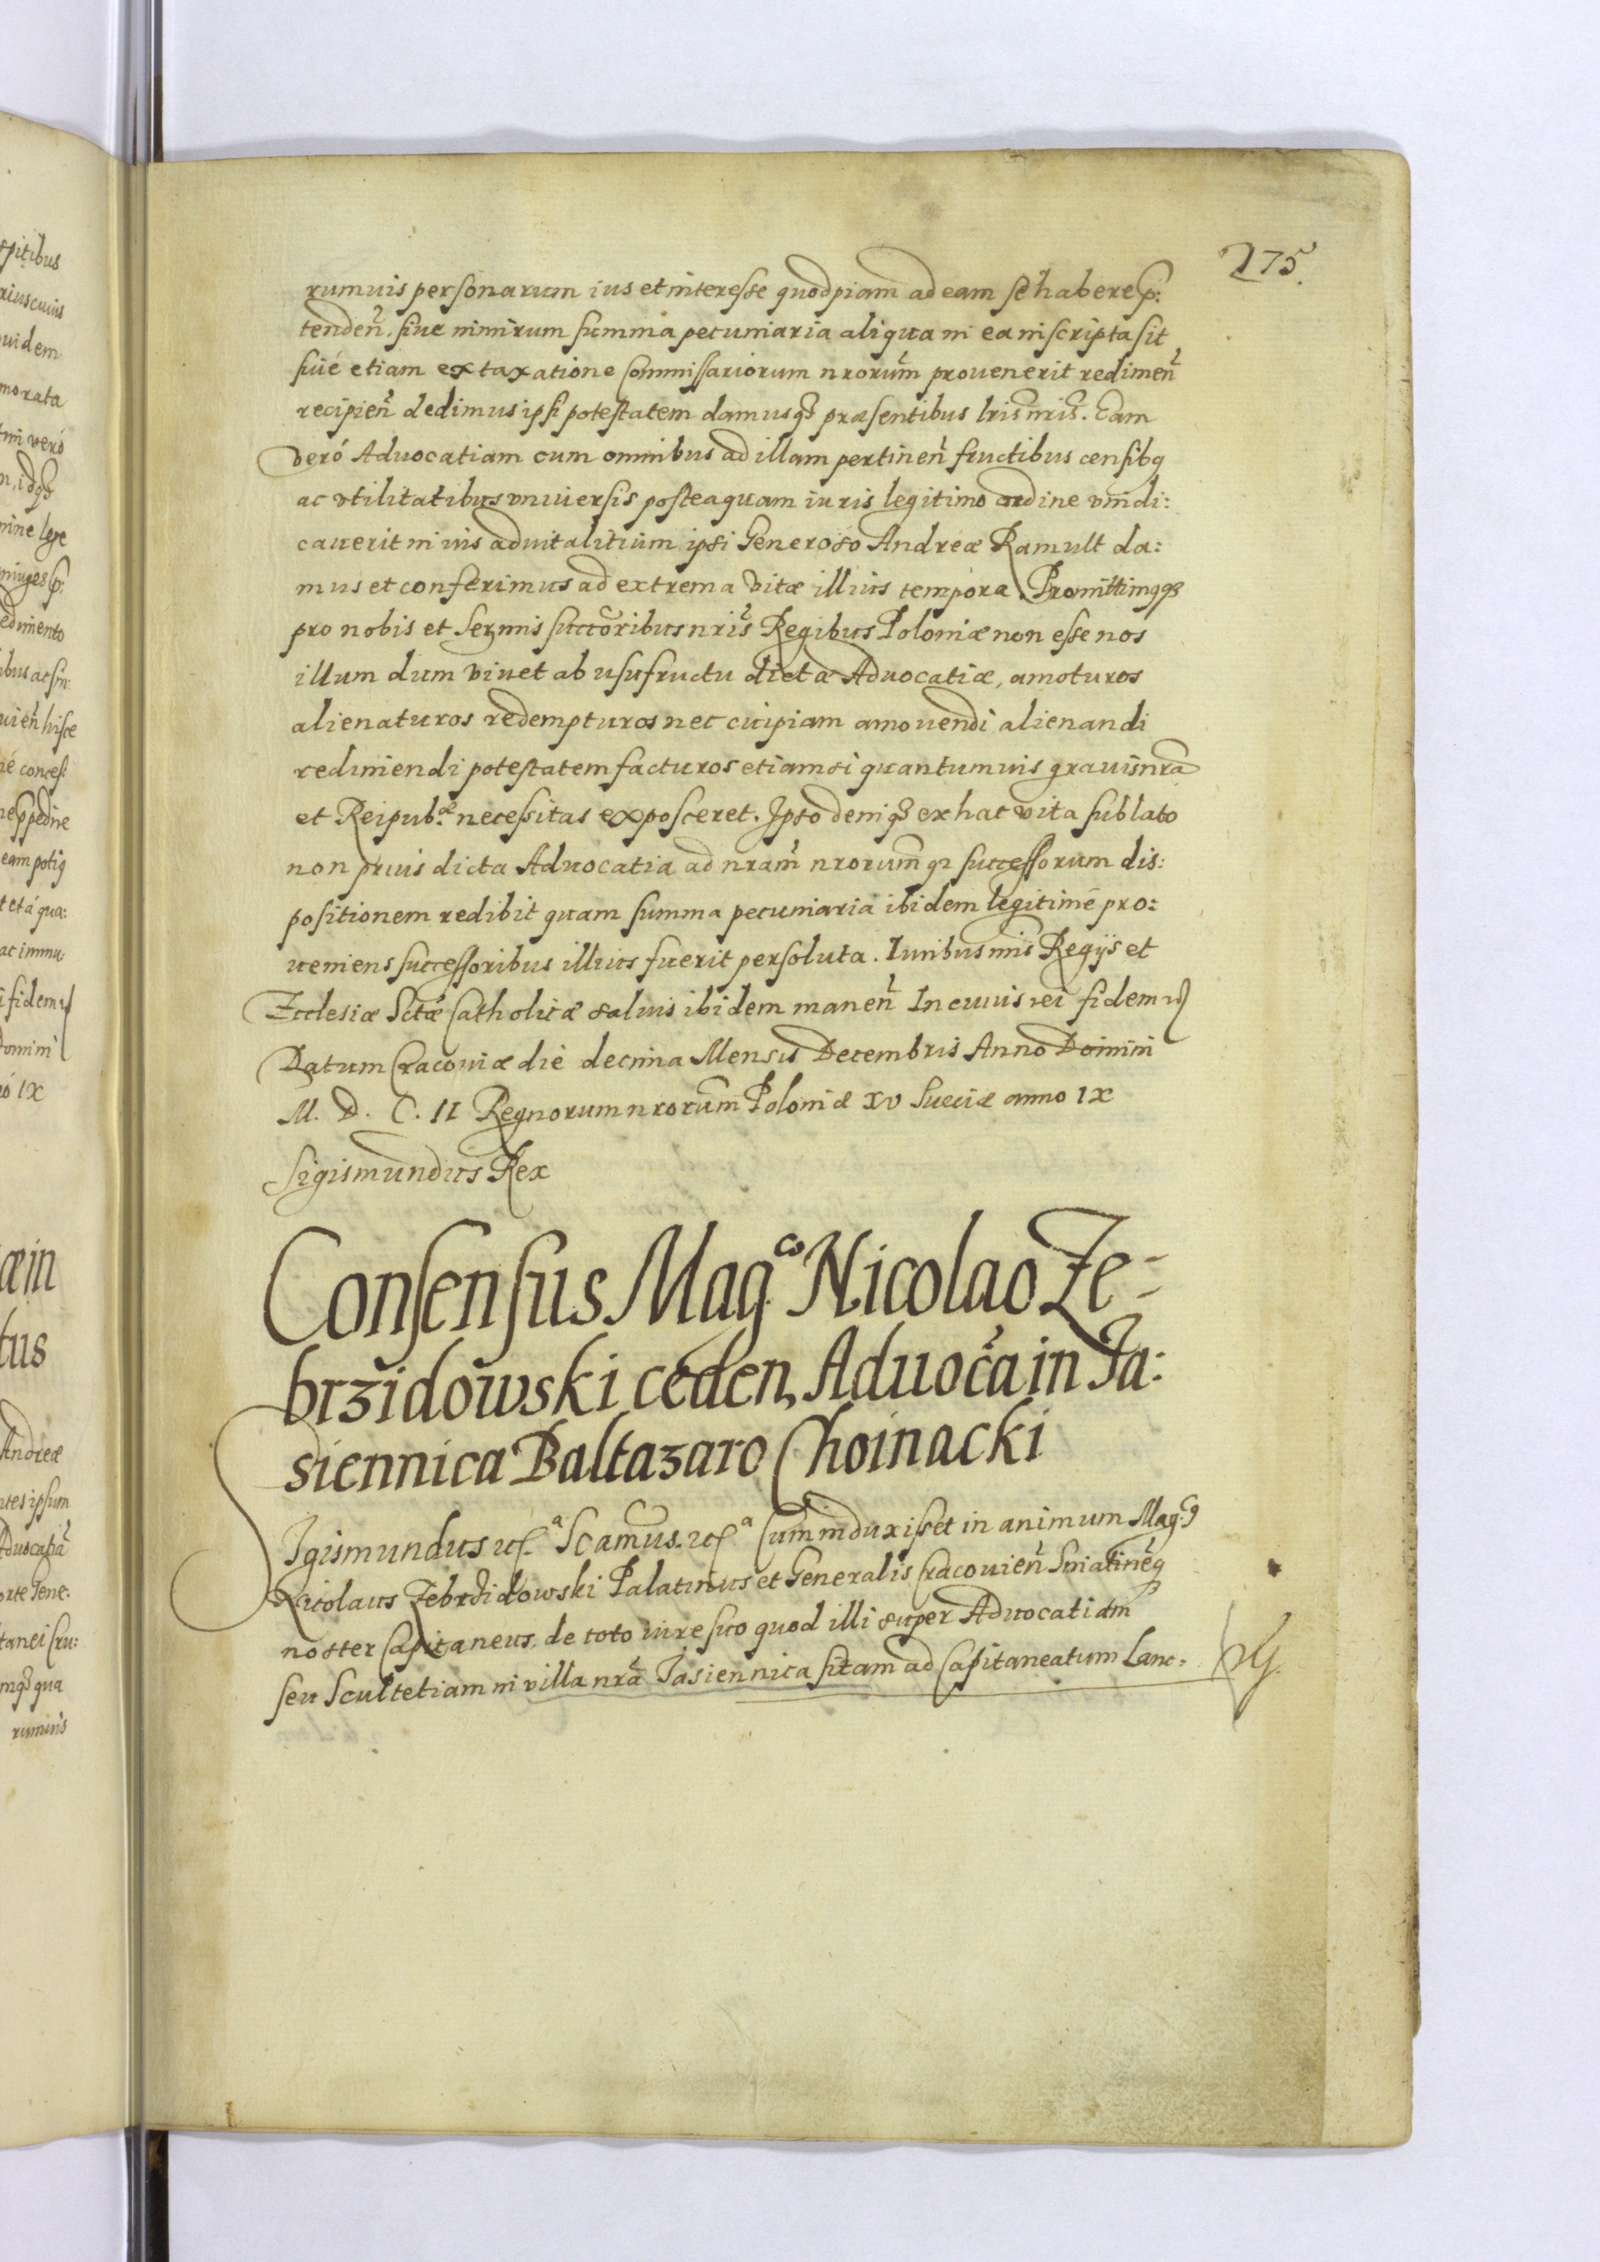 175.
rumuis personarum ius et interesse quodpiam ad eam se habere p:
tenden̄. siue nimirum summa pecuniaria aliqua in ea inscripta sit
siué etiam ex taxatione Commissariorum nrorum̄ prouenerit redimen̄
recipien̄ dedimus ipsi potestatem damusq3 præsentibus lris nris. Eam
veró Aduocatiam cum omnibus ad illam pertinen̄ fructibus censibq
ac vtilitatibus vniuersis posteaquam iuris legitimo ordine vindi:
cauerit in uis aduitalitium ipsi Generoso Andreæ Ramult da:
mus et conferimus ad extrema vitæ illius tempora. Promittimqq3
pro nobis et Sermis succōribus nris Regibus Poloniæ non esse nos
illum dum viuet ab usufructu dictæ Aduocatiæ, amoturos
alienaturos redempturos nec cuipiam amouendi alienandi
redimendi potestatem facturos etiamsi quantumuis grauis nrā
et Reipub.æ necessitas exposceret. Ipso deniq3 ex hac vita sublato
non prius dicta Aduocatia ad nram̄ nrorum̄q3 successorum dis:
positionem redibit quam summa pecuniaria ibidem legitimé pro:
ueniens successoribus illius fuerit persoluta. Iuribus nris Regijs et
Ecclesiæ Sctæ Catholicæ saluis ibidem manen̄ In cuius rei fidem
Datum Cracouiæ dié decima Mensis Decembris Anno Domini
M. D. C. II Regnorum nrorum̄ Poloniæ XV Sueciæ anno IX
Sigismundus Rex
Consensus Mag.co Nicolao Ze-
brzidowski ceden, Aduocā in Ja:
siennica Baltazaro Choinacki
Sigismundus etc.a Scamus. etc.a Cum induxisset in animum Mag.cq
Nicolaus Zebrzidowski Palatinus et Generalis Cracouien̄ Sniatinēq
noster Capitaneus. de toto iure suo quod illi super Aduocatiam
seu Scultetiam in villa nrā Jasiennica sitam ad Capitaneatum Lanc: